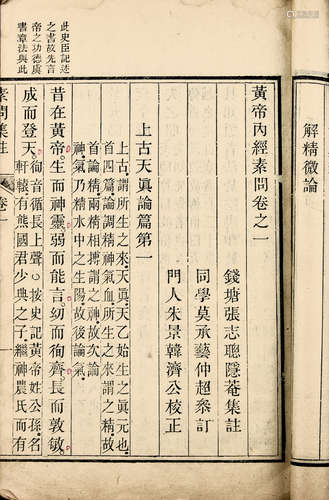 解精微論
黃帝內經素問卷之一
錢塘張志聰隱菴集註
同學莫承藝仲超參訂
門人朱景韓濟公校正
上古天眞論篇第一
上古謂所生之來天眞天乙始生之眞元也
首四篇論調精神氣血所生之來謂之精故
首論精兩精相搏謂之神故次論
神氣乃精水中之生陽故後論氣
昔在黃帝生而神靈弱而能言幼而徇齊長而敦敏
成而登天徇音循長上聲○按史記黃帝姓公孫名
軒轅有熊國君少典之子繼神農氏而有
此史臣記述
之書故先言
帝之功德虞
書章法與此
素問集註
卷一